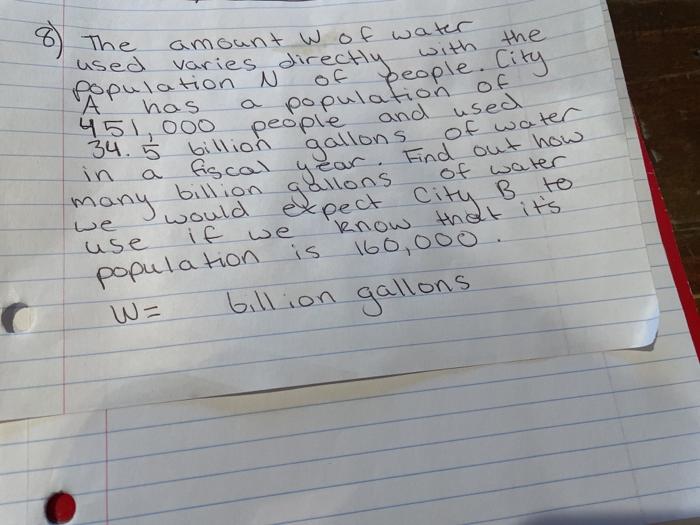 8) The amount W of water
used varies directly with the
population N of people. City
A has a population of
451,000 people and used
34.5 billion gallons of water
in a fiscal year. Find out how
many billion gallons of water
we would expect City B to
use if we know that it's
population is 160,000.
W= billion gallons